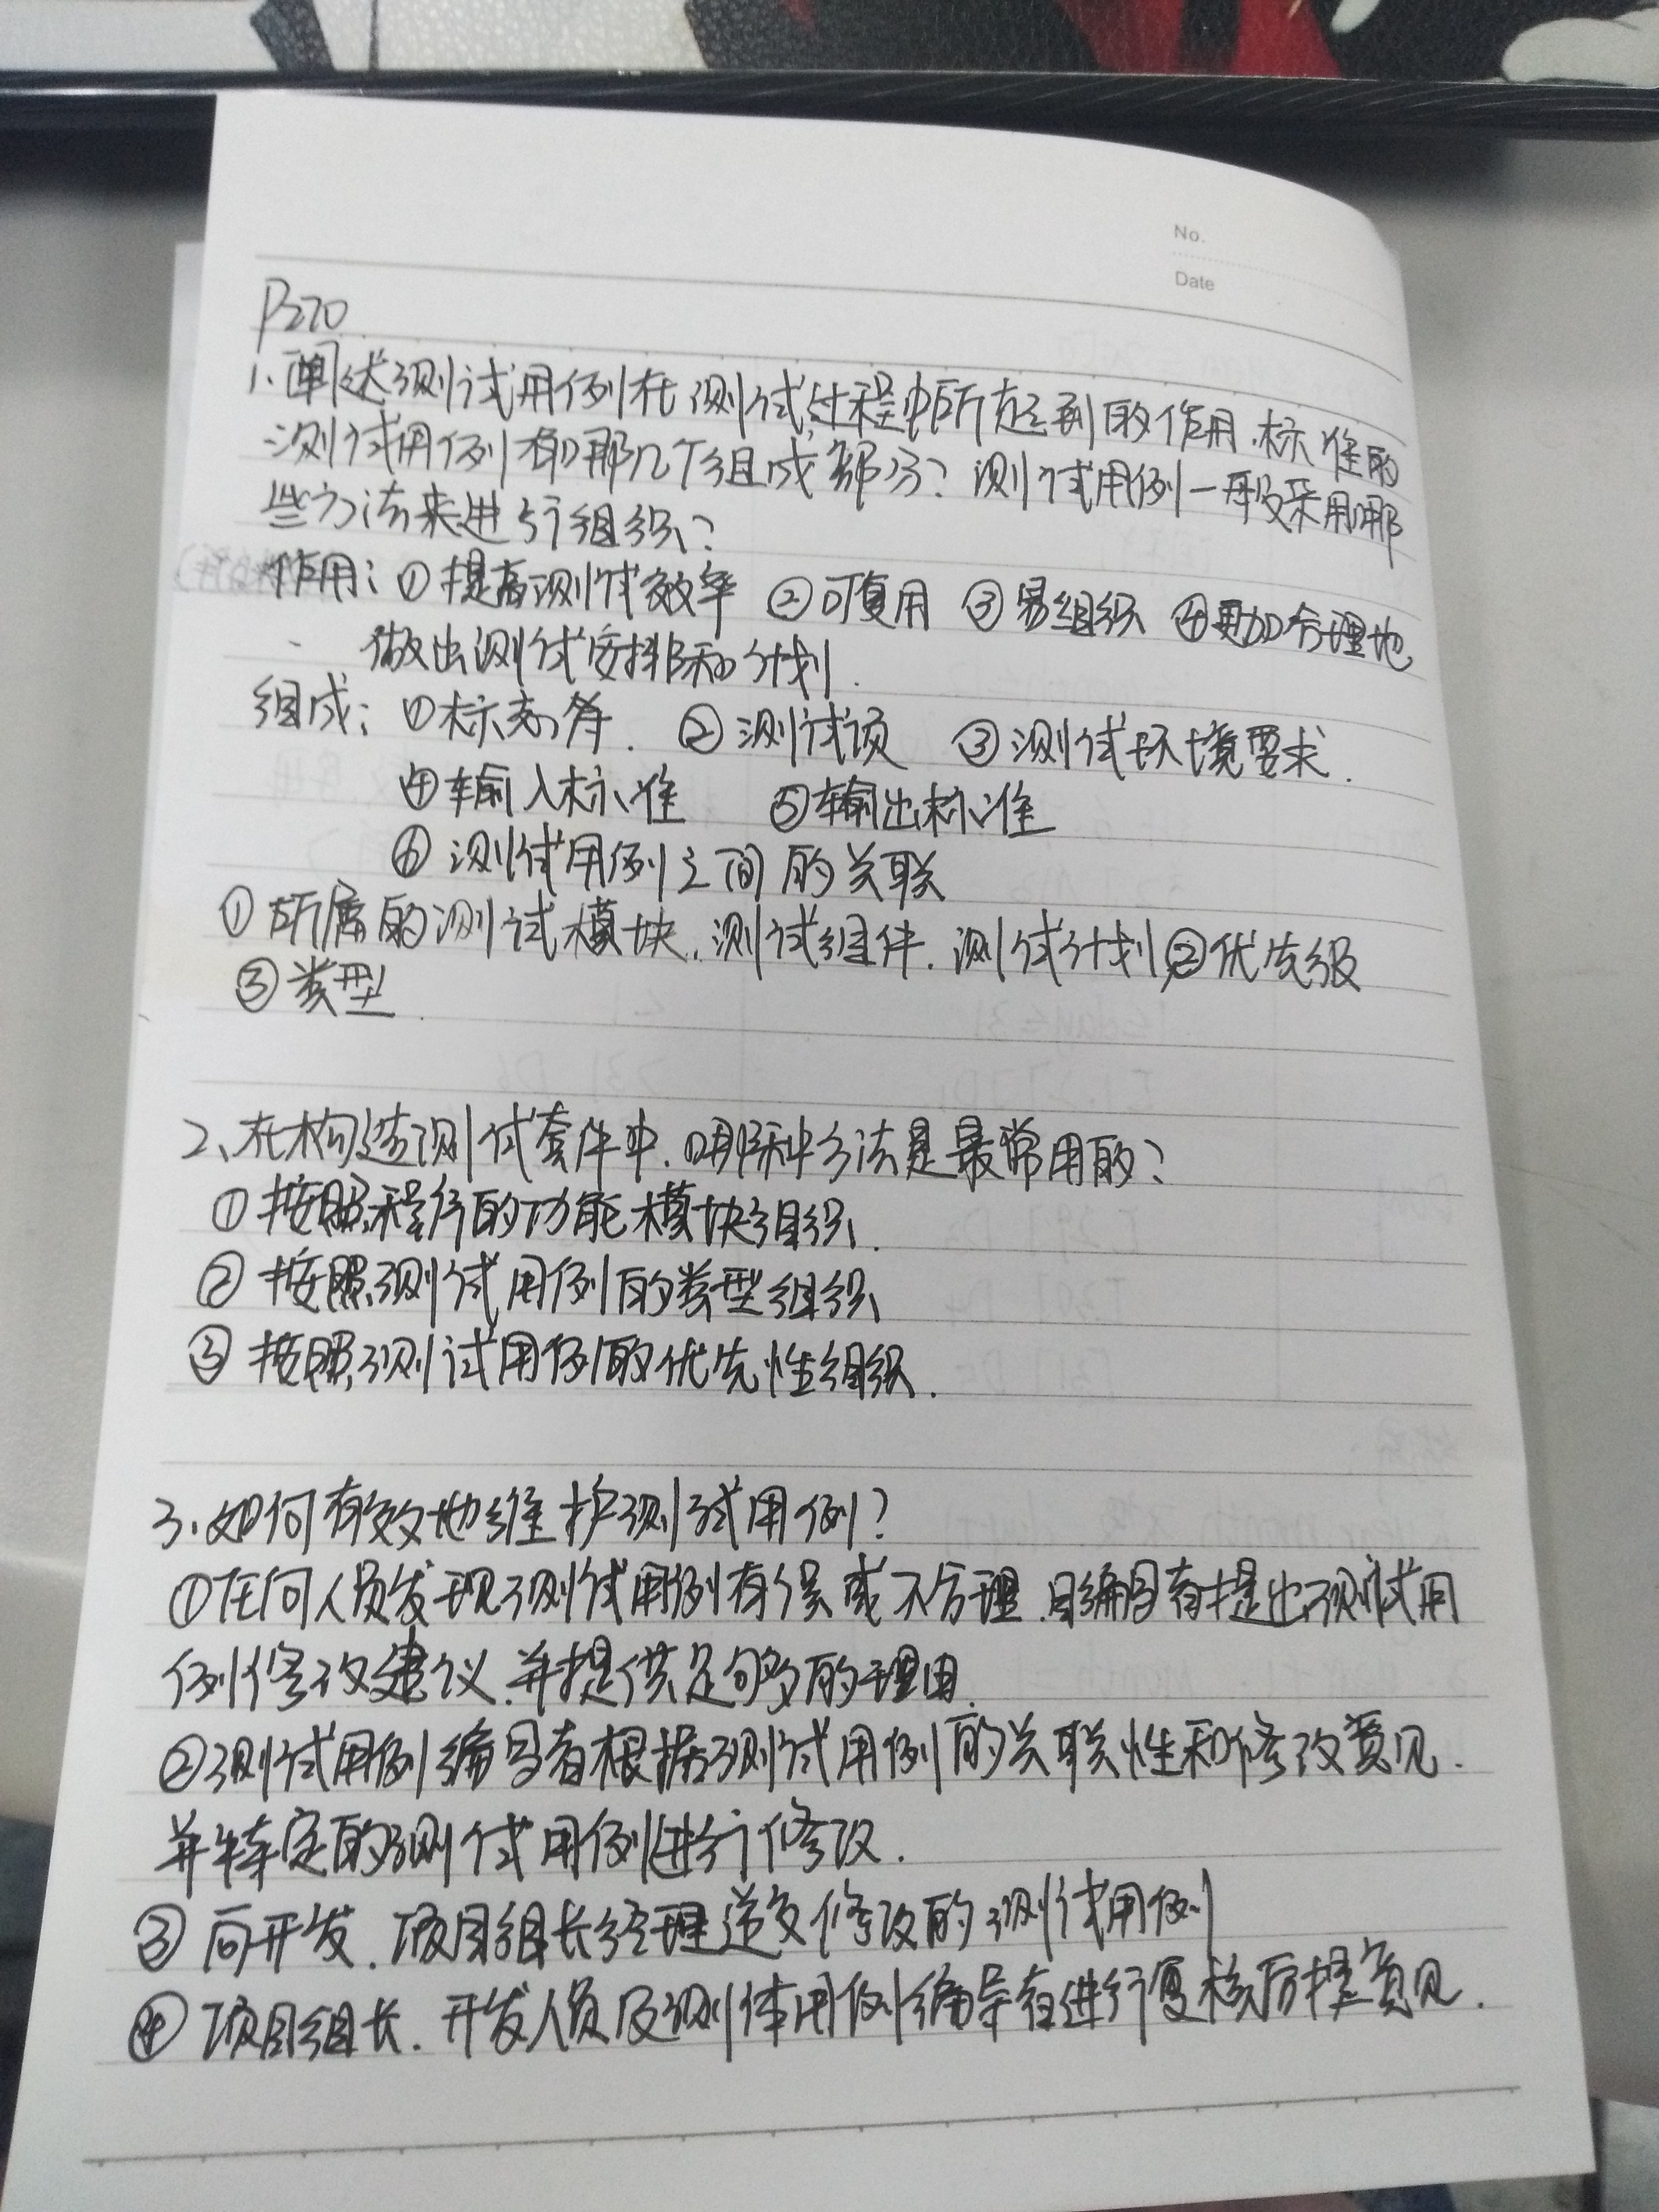 No.
Date
P270
1.阐述测试用例在测试过程中所起到的作用.标准的
测试用例有哪几个组成部分?测试用例一般采用哪
些方法来进行组织?
作用:①提高测试效率 ②可复用 ③易组织 ④更加合理地
做出测试安排和计划.
组成:①标志符. ②测试项 ③测试环境要求.
④输入标准 ⑤输出标准
⑥测试用例之间的关联
①所属的测试模块.测试组件.测试计划,②优先级
③类型.
2、在构造测试套件中.哪种方法是最常用的?
①按照程序的功能模块组织.
②按照测试用例的类型组织
③按照测试用例的优先性组织.
3.如何有效地维护测试用例?
①任何人员发现测试用例有误或不合理.向编写者提出测试用
例修改建议.并提供足够多的理由.
②测试用例编写者根据测试用例的关联性和修改意见.
并特定的测试用例进行修改.
③向开发.项目组长经理递交修改的测试用例
④项目组长.开发人员及测体用例编导者进行复核后提意见.